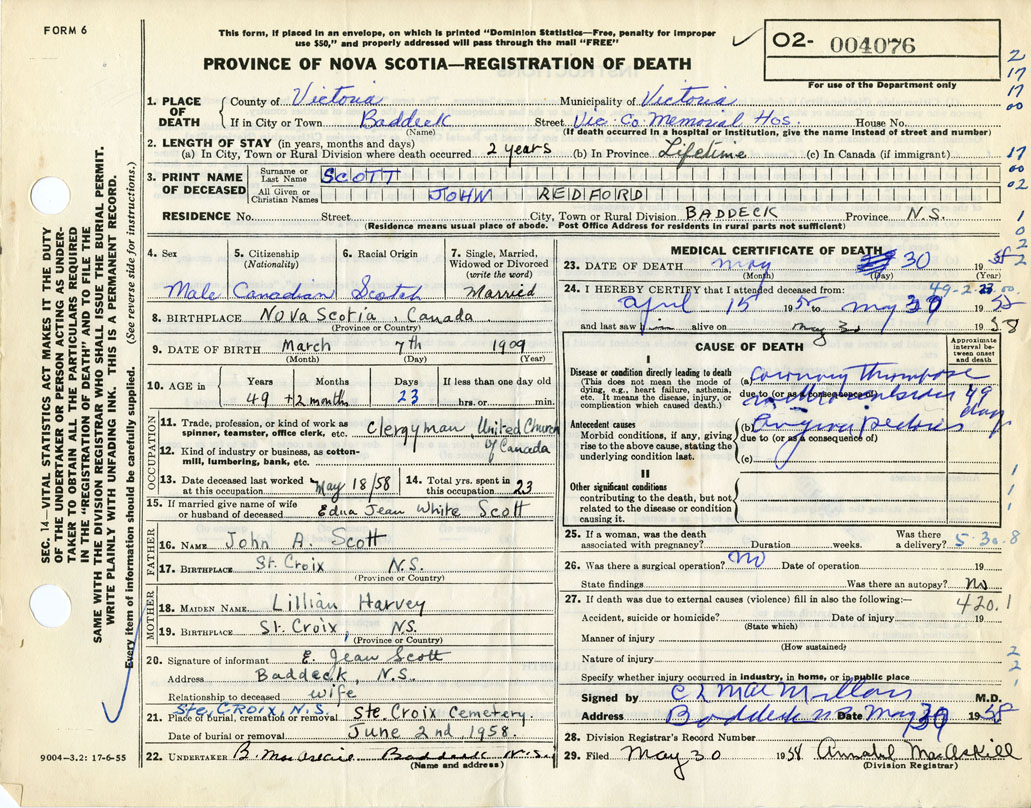 FORM 6
This form, if placed in an envelope, on which is printed "Dominion Statistics—Free, penalty for improper
use $50," and properly addressed will pass through the mail "FREE"
PROVINCE OF NOVA SCOTIA—REGISTRATION OF DEATH
O2- 004076
For use of the Department only
2
17
17
00
17
00
02
1
0
2
2
1. PLACE OF DEATH { County of Victoria Municipality of Victoria
If in City or Town Baddeck Street Vic. Co. Memorial Hos. House No.
(Name) (If death occurred in a hospital or institution, give the name instead of street and number)
2. LENGTH OF STAY (in years, months and days)
(a) In City, Town or Rural Division where death occurred 2 years (b) In Province Lifetime (c) In Canada (if immigrant)
3. PRINT NAME OF DECEASED { Surname or Last Name SCOTT
All Given or Christian Names JOHN REDFORD
RESIDENCE No. Street City, Town or Rural Division BADDECK Province N.S.
(Residence means usual place of abode. Post Office Address for residents in rural parts not sufficient)
4. Sex Male
5. Citizenship (Nationality) Canadian
6. Racial Origin Scotch
7. Single, Married, Widowed or Divorced (write the word) Married
8. BIRTHPLACE Nova Scotia, Canada
(Province or Country)
9. DATE OF BIRTH March 7th 1909
(Month) (Day) (Year)
10. AGE in { Years Months Days If less than one day old
49 +2 months 23 hrs. or min.
OCCUPATION
11. Trade, profession, or kind of work as spinner, teamster, office clerk, etc. Clergyman, United Church of Canada
12. Kind of industry or business, as cotton-mill, lumbering, bank, etc.
13. Date deceased last worked at this occupation May 18/58
14. Total yrs. spent in this occupation 23
15. If married give name of wife or husband of deceased Edna Jean White Scott
FATHER
16. NAME John A. Scott
17. BIRTHPLACE St. Croix N.S.
(Province or Country)
MOTHER
18. MAIDEN NAME Lillian Harvey
19. BIRTHPLACE St. Croix, N.S.
(Province or Country)
20. Signature of informant E. Jean Scott
Address Baddeck, N.S.
Relationship to deceased wife
Ste. CROIX, N.S.
21. Place of burial, cremation or removal Ste. Croix Cemetery.
Date of burial or removal June 2nd, 1958.
22. UNDERTAKER B. MacAskill Baddeck N.S.
(Name and address)
MEDICAL CERTIFICATE OF DEATH
23. DATE OF DEATH May 30 1958
(Month) (Day) (Year)
49-2-23.00.
24. I HEREBY CERTIFY that I attended deceased from:
April 15 1958 to May 30 1958
and last saw him alive on May 30 1958
CAUSE OF DEATH
Approximate interval between onset and death
I
Disease or condition directly leading to death
(This does not mean the mode of dying, e.g., heart failure, asthenia, etc. It means the disease, injury, or complication which caused death.)
(a) Coronary Thrombosis
due to (or as a consequence of)
49 days
Antecedent causes
Morbid conditions, if any, giving rise to the above cause, stating the underlying condition last.
(b) Angina pectoris
due to (or as a consequence of)
(c)
II
Other significant conditions
contributing to the death, but not related to the disease or condition causing it.
1
1
1
25. If a woman, was the death associated with pregnancy? Duration weeks. Was there a delivery? 5-30-8
26. Was there a surgical operation? No Date of operation 19
State findings Was there an autopsy? No
27. If death was due to external causes (violence) fill in also the following:— 420.1
Accident, suicide or homicide? Date of injury 19
(State which)
Manner of injury
(How sustained)
Nature of injury
2
2
1
Specify whether injury occurred in industry, in home, or in public place
Signed by C L MacMillan M.D.
Address Baddeck N.S. Date May 30 1958
28. Division Registrar's Record Number
29. Filed May 30 1958 Annabel MacAskill
(Division Registrar)
SEC. 14—VITAL STATISTICS ACT MAKES IT THE DUTY
OF THE UNDERTAKER OR PERSON ACTING AS UNDER-
TAKER TO OBTAIN ALL THE PARTICULARS REQUIRED
IN THE "REGISTRATION OF DEATH" AND TO FILE THE
SAME WITH THE DIVISION REGISTRAR WHO SHALL ISSUE THE BURIAL PERMIT.
WRITE PLAINLY WITH UNFADING INK. THIS IS A PERMANENT RECORD.
Every item of information should be carefully supplied. (See reverse side for instructions.)
9004—3.2: 17-6-55